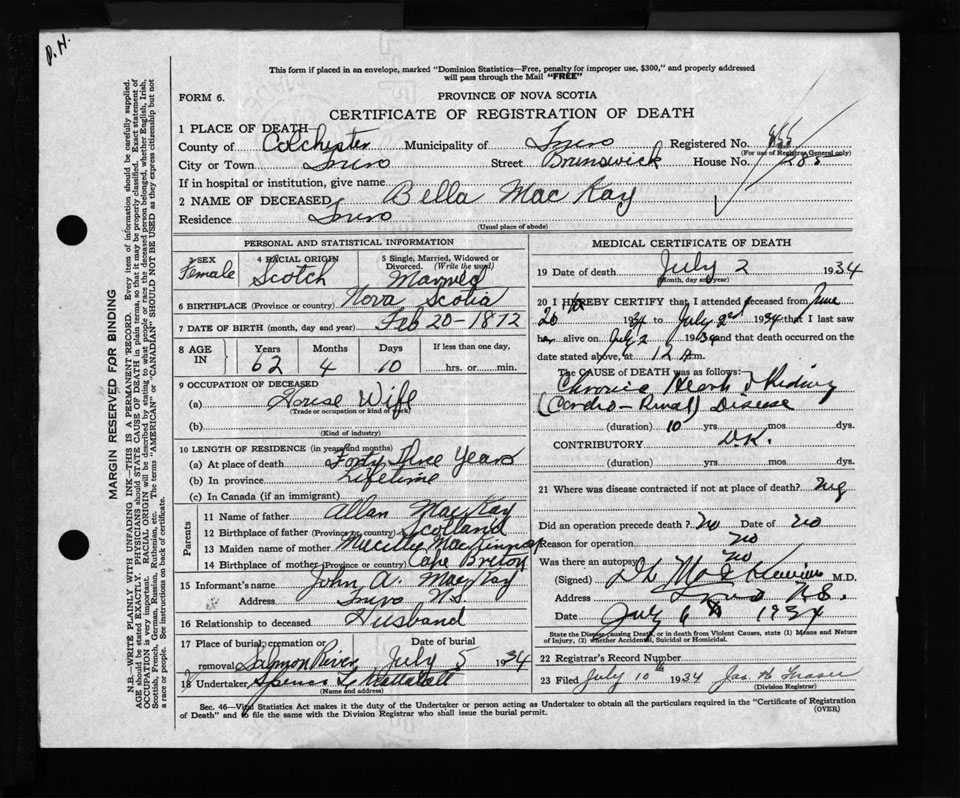 D.H.
This form if placed in an envelope, marked "Dominion Statistics—Free, penalty for improper use, $300," and properly addressed
will pass through the Mail "FREE"
FORM 6. PROVINCE OF NOVA SCOTIA
CERTIFICATE OF REGISTRATION OF DEATH
1 PLACE OF DEATH
County of Colchester Municipality of Truro Registered No.
(For use of Registrar General only)
City or Town Truro Street Brunswick House No.
If in hospital or institution, give name
2 NAME OF DECEASED Bella MacKay
Residence Truro
(Usual place of abode)
PERSONAL AND STATISTICAL INFORMATION
3 SEX 4 RACIAL ORIGIN 5 Single, Married, Widowed or Divorced. (Write the word)
Female Scotch Married
6 BIRTHPLACE (Province or country) Nova Scotia
7 DATE OF BIRTH (month, day and year) Feb 20-1872
8 AGE IN Years Months Days If less than one day,
62 4 10 hrs. or min.
9 OCCUPATION OF DECEASED
(a) House Wife
(Trade or occupation or kind of work)
(b)
(Kind of industry)
10 LENGTH OF RESIDENCE (in years and months)
(a) At place of death Forty Three Years
(b) In province Lifetime
(c) In Canada (if an immigrant)
Parents
11 Name of father Allan MacKay
12 Birthplace of father (Province or country) Scotland
13 Maiden name of mother
14 Birthplace of mother (Province or country) Cape Breton
15 Informant's name John A. MacKay
Address Truro N.S.
16 Relationship to deceased Husband
17 Place of burial, cremation or removal Date of burial
Salmon River July 5 1934
18 Undertaker Spencer L.
(Name and address)
MEDICAL CERTIFICATE OF DEATH
19 Date of death July 2 1934
(month, day and year)
20 I HEREBY CERTIFY that I attended deceased from June
20th 1934 to July 2nd 1934 that I last saw
her alive on July 2 1934 and that death occurred on the
date stated above, at 12 m.
The CAUSE OF DEATH was as follows:
Chronic Heart & Kidney
(Cardio-Renal) Disease
(duration) 10 yrs. mos. dys.
CONTRIBUTORY D.K.
(duration) yrs. mos. dys.
21 Where was disease contracted if not at place of death?
Did an operation precede death? no Date of no
Reason for operation no
Was there an autopsy? no
(Signed) M.D.
Address Truro N.S.
Date July 6th 1934
State the Disease causing Death, or in death from Violent Causes, state (1) Means and Nature
of Injury, (2) whether Accidental, Suicidal or Homicidal.
22 Registrar's Record Number
23 Filed July 10th 1934 Jas. H. Fraser
(Division Registrar)
Sec. 46—Vital Statistics Act makes it the duty of the Undertaker or person acting as Undertaker to obtain all the particulars required in the "Certificate of Registration
of Death" and to file the same with the Division Registrar who shall issue the burial permit. (OVER)
MARGIN RESERVED FOR BINDING
N.B.—WRITE PLAINLY WITH UNFADING INK—THIS IS A PERMANENT RECORD. Every item of information should be carefully supplied.
AGE should be stated EXACTLY. PHYSICIANS should STATE CAUSE OF DEATH in plain terms, so that it may be properly classified. Exact statement of
OCCUPATION is very important. RACIAL ORIGIN will be described by stating to what people or race the deceased person belonged, whether English, Irish,
Scottish, French, German, Russian, Ruthenian, etc. The terms "AMERICAN" or "CANADIAN" SHOULD NOT BE USED as they express citizenship but not
a race or people. See instructions on back of certificate.